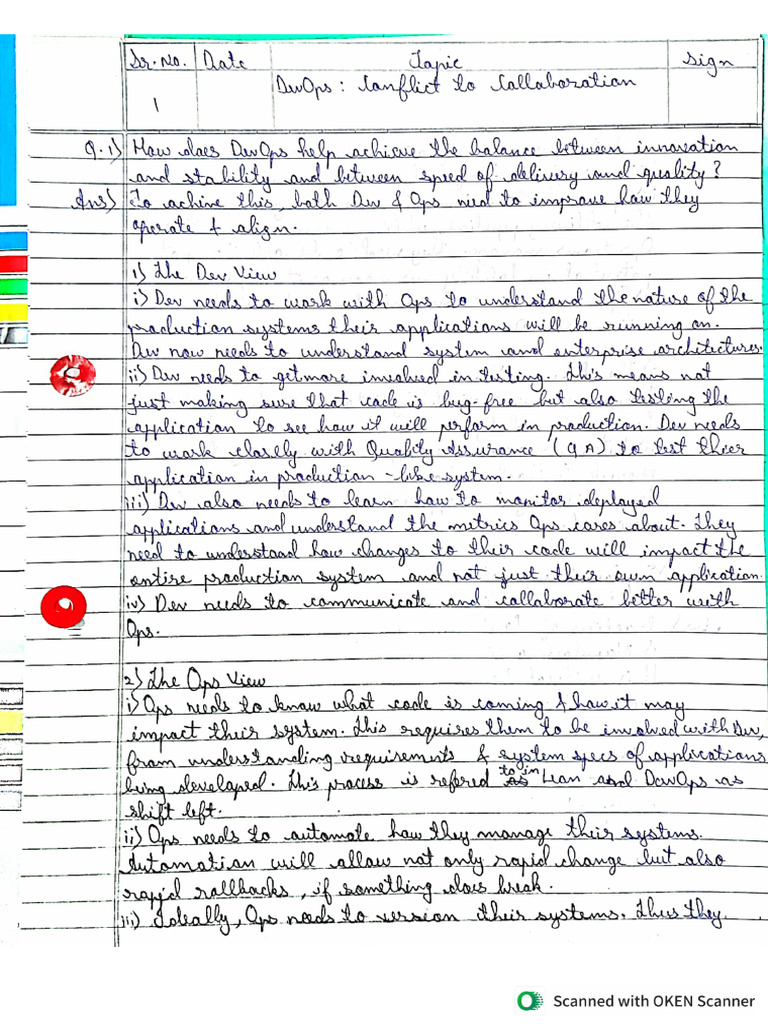 Sr.No. Date Topic Sign
1 DevOps : Conflict to Collaboration
Q.1) How does DevOps help achieve the balance between innovation
and stability and between speed of delivery and quality ?
Ans) To achive this, both Dev & Ops need to improve how they
operate & align.
1) The Dev View
i) Dev needs to work with Ops to understand the nature of the
production systems their applications will be running on.
Dev now needs to understand system and enterprise architectures.
ii) Dev needs to get more involved in testing. This means not
just making sure that code is bug-free but also testing the
application to see how it will perform in production. Dev needs
to work closely with Quality Assurance (QA) to test their
application in production-like system.
iii) Dev also needs to learn how to monitor deployed
applications and understand the metrics Ops cares about. They
need to understand how changes to their code will impact the
entire production system and not just their own application.
iv) Dev needs to communicate and collaborate better with
Ops.
2) The Ops View
i) Ops needs to know what code is coming & how it may
impact their system. This requires them to be involved with Dev,
from understanding requirements & system specs of applications
being developed. This process is refered to in Lean and DevOps as
shift left.
ii) Ops needs to automate how they manage their systems.
Automation will allow not only rapid change but also
rapid rollbacks, if something does break.
iii) Ideally, Ops needs to version their systems. Thus they
Scanned with OKEN Scanner